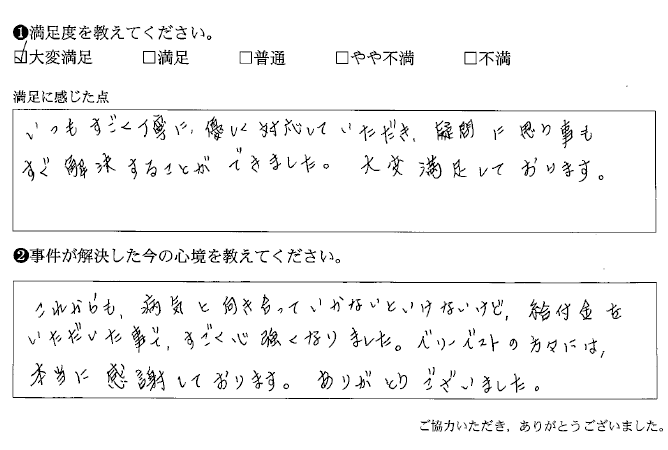 ❶満足度を教えてください。
☑大変満足 □満足 □普通 □やや不満 □不満
満足に感じた点
いつもすごく丁寧に、優しく対応していただき、疑問に思う事も
すぐ解決することができました。大変満足しております。
❷事件が解決した今の心境を教えてください。
これからも、病気と向き合っていかないといけないけど、給付金を
いただいた事で、すごく心強くなりました。ベリーベストの方々には、
本当に感謝しております。ありがとうございました。
ご協力いただき、ありがとうございました。